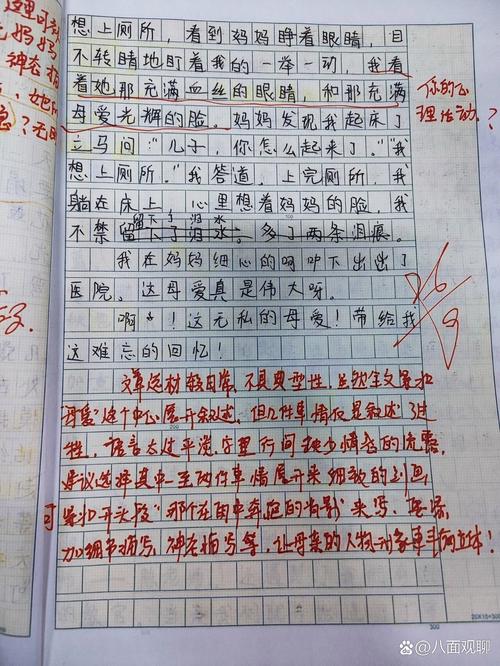 想上厕所，看到妈妈睁着眼睛，目
不转睛地盯着我的一举一动，我看
着她那充满血丝的眼睛，和那充满
母爱光辉的脸。妈妈发现我起床了
立马问"儿子，你怎么起来了。""我
想上厕所。"我答道，上完厕所，我
躺在床上，心里想着妈妈的脸，我
不禁留下了泪水。多了两条泪痕。
留下了泪水
我在妈妈细心的呵护下出出了
医院，这母爱真是伟大呀。
啊！这无私的母爱！带给我
这难忘的回忆！
你的心
理活动？
文章选材较日常，不具典型性，虽然全文
"母爱"这个中心展开叙述，但几件事情仅是叙述了过
程，语言太过平淡，字里行间缺少情感的流露，
建议选择其中一至两件事情展开来细致的刻画，
可
开头段"那个在雨中奔跑的背影"来写，
加细节描写，神态描写等，让母亲的人物形象更丰满立体！
这里可
妈妈
神态描
20X15=300
300
200
100
@八面观聊